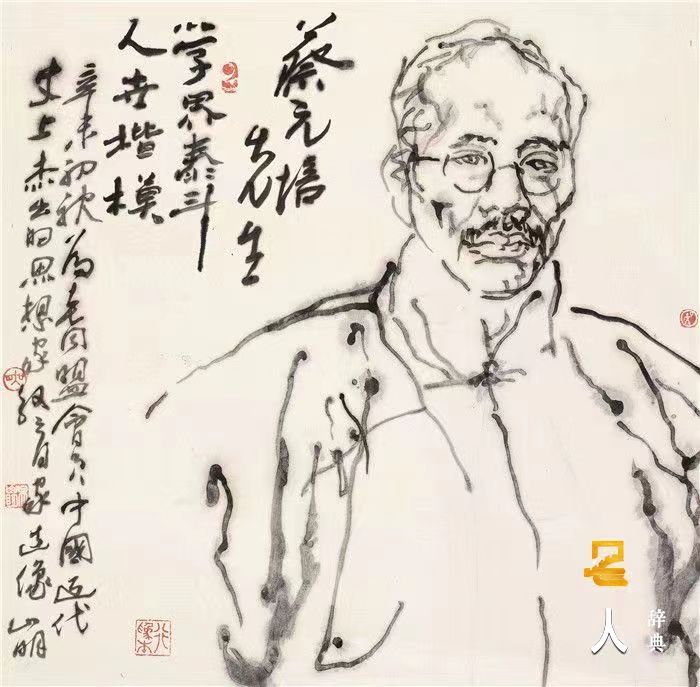 蔡元培
先生
学界泰斗
人世楷模
辛未初秋为老同盟會员中國近代
史上杰出的思想家教育家造像山明
人
辞典